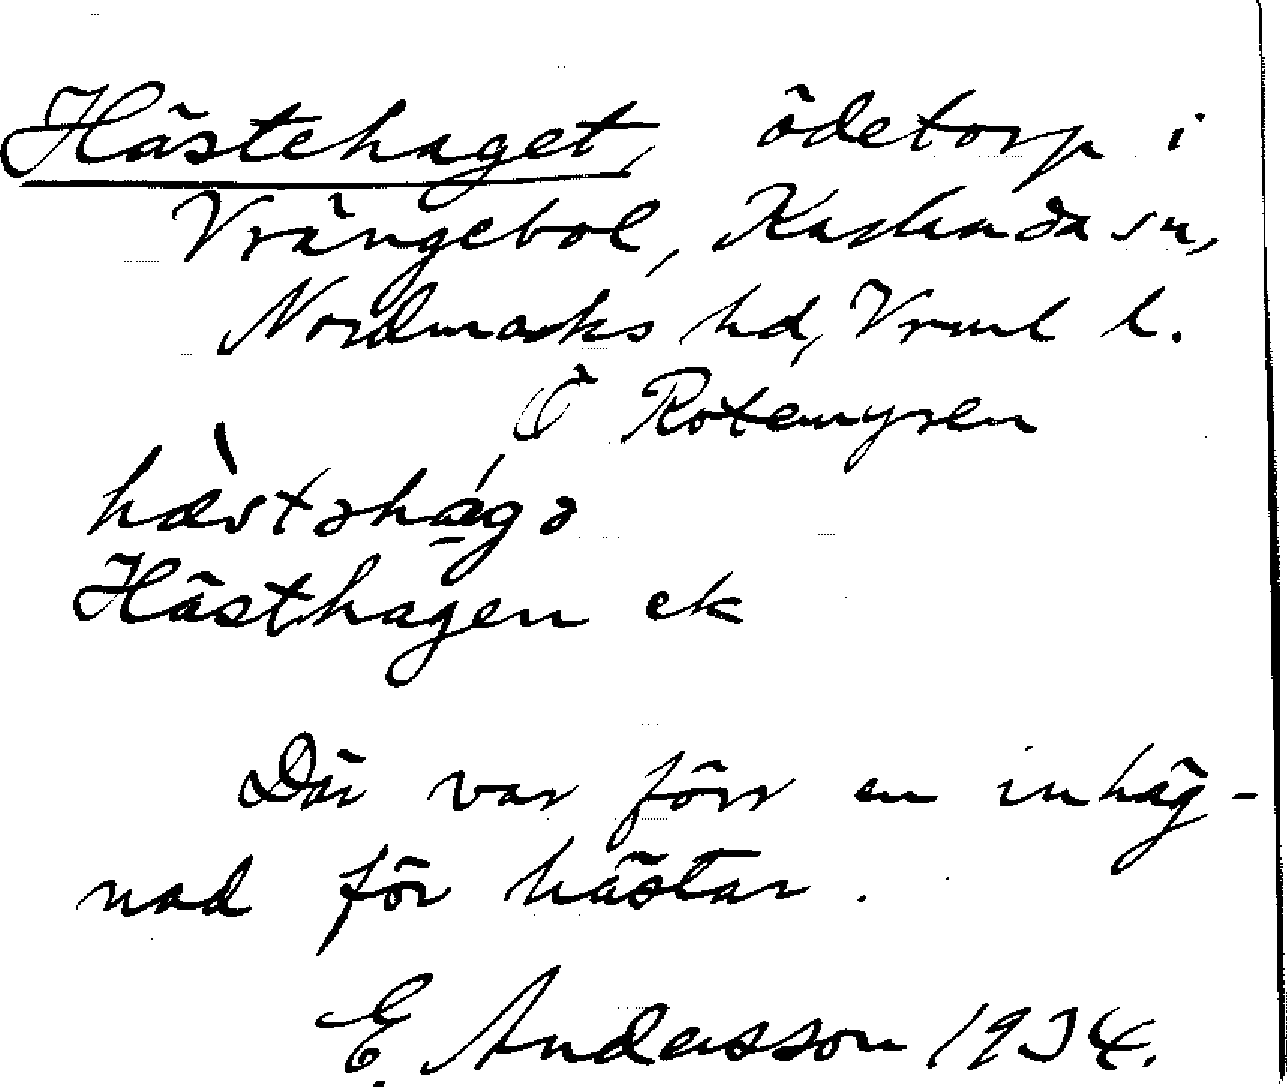 Hästehaget, ödetorp i
Vrängebol, Karlanda sn,
Nordmarks hd, Vrml l.
Ö Rotemyren
hæ̀stəhá̱gə
Hästhagen ek
Där var förr en inhäg-
nad för hästar.
E. Andersson 1934.